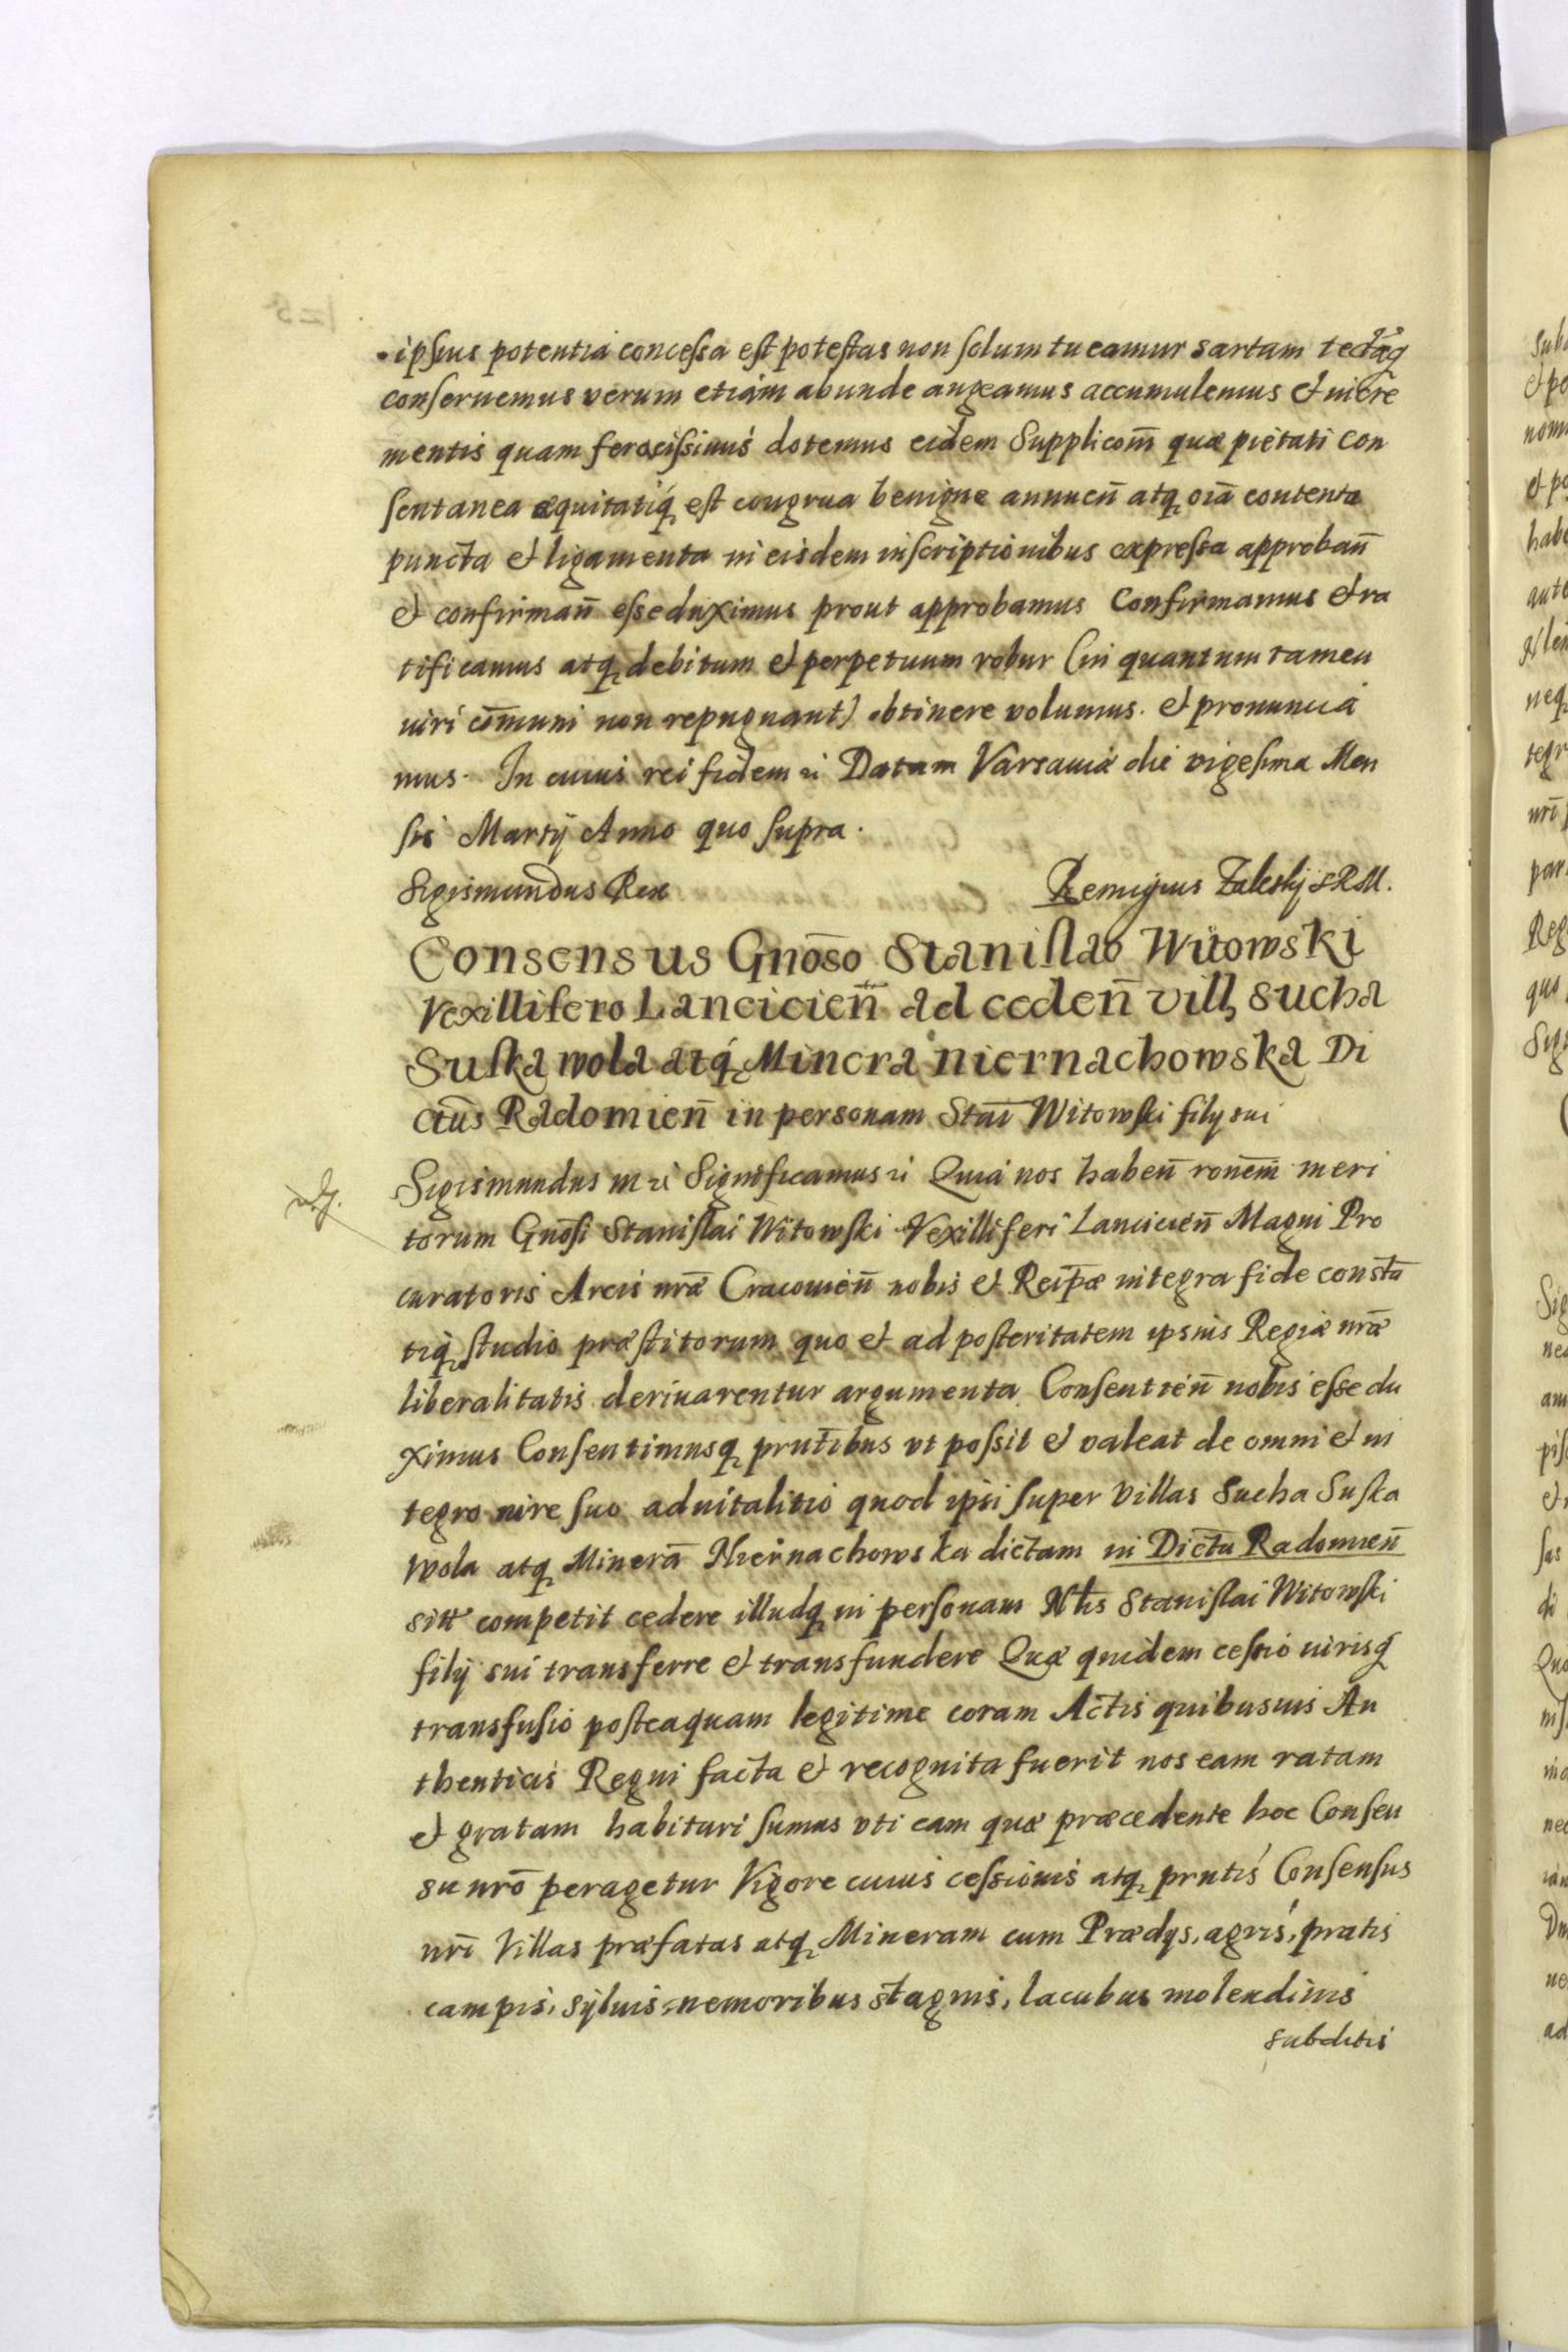 ipsius potentia concessa est potestas non solum tueamur sartam tectāq
conseruemus verum etiam abunde augeamus accumulemus et incre
mentis quam feracissimis dotemus eidem Supplicōni quæ pietati con
sentanea æquitatiq est congrua benigne annueñ atq oīa contenta
puncta et ligamenta in eisdem inscriptionibus expressa approbañ
et confirmañ esse duximus prout approbamus Confirmamus et ra
tificamus atq debitum et perpetuum robur (in quantum tamen
iuri cōmuni non repugnant) obtinere volumus. et pronuncia
mus. In cuius rei fidem ꝛ Datum Varsauiæ die vigesima Men
sis Martij Anno quo supra.
Sigismundus Rex Remigius Zaleskj SRM.
Consensus Gnōso Stanislao Witowski
Vexillifero Lancicieñ ad cedeñ vill, Sucha
Suska wola atq Minera niernachowska Di
ctūs Radomieñ in personam Staī Witowski filij sui
Sigismundus III ꝛ Significamus ꝛ Quia nos habeñ ronēm meri
torum Gnōsi Stanislai Witowski Vexilliferi Lancicieñ Magni Pro
curatoris Arcis nrǣ Cracouieñ nobis et Reipǣ integra fide constā
tiq studio præstitorum quo et ad posteritatem ipsius Regiæ nrǣ
liberalitatis deriuarentur argumenta Consentieñ nobis esse du
ximus Consentimusq prntībus vt possit et valeat de omni et in
tegro iure suo aduitalitio quod ipsi super Villas Sucha Suska
Wola atq Minerā Niernachowska dictam in Dictu Radomieñ
sitt competit cedere illudq in personam Nlis Stanislai Witowski
filij sui transferre et transfundere Quæ quidem cessio iurisq
transfusio posteaquam legitime coram Actis quibusuis Au
thenticis Regni facta et recognita fuerit nos eam ratam
et gratam habituri sumus vti eam quæ præcedente hoc Consen
su nrō peragetur Vigore cuius cessionis atq prntis Consensus
nrī Villas præfatas atq Mineram cum Prædijs, agris, pratis
campis, syluis, nemoribus stagnis, lacubus molendinis
subditis